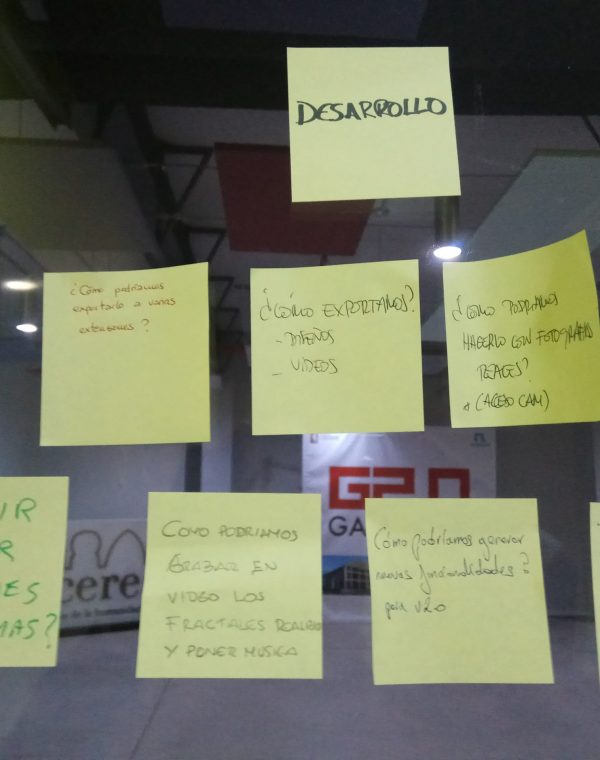 DESARROLLO
¿Cómo podríamos
exportarlo a varias
extensiones?
¿CÓMO EXPORTAMOS?
- DISEÑOS
- VIDEOS
¿CÓMO PODRIAMOS
HACERLO CON FOTOGRAFIAS
REALES?
(ACCESO CAM)
IR
R
ES
MAS?
COMO PODRIAMOS
GRABAR EN
VIDEO LOS
FRACTALES
Y PONER MUSICA
Cómo podríamos generar
nuevas funcionalidades?
para v2.0
cere
de la humanidad
GA